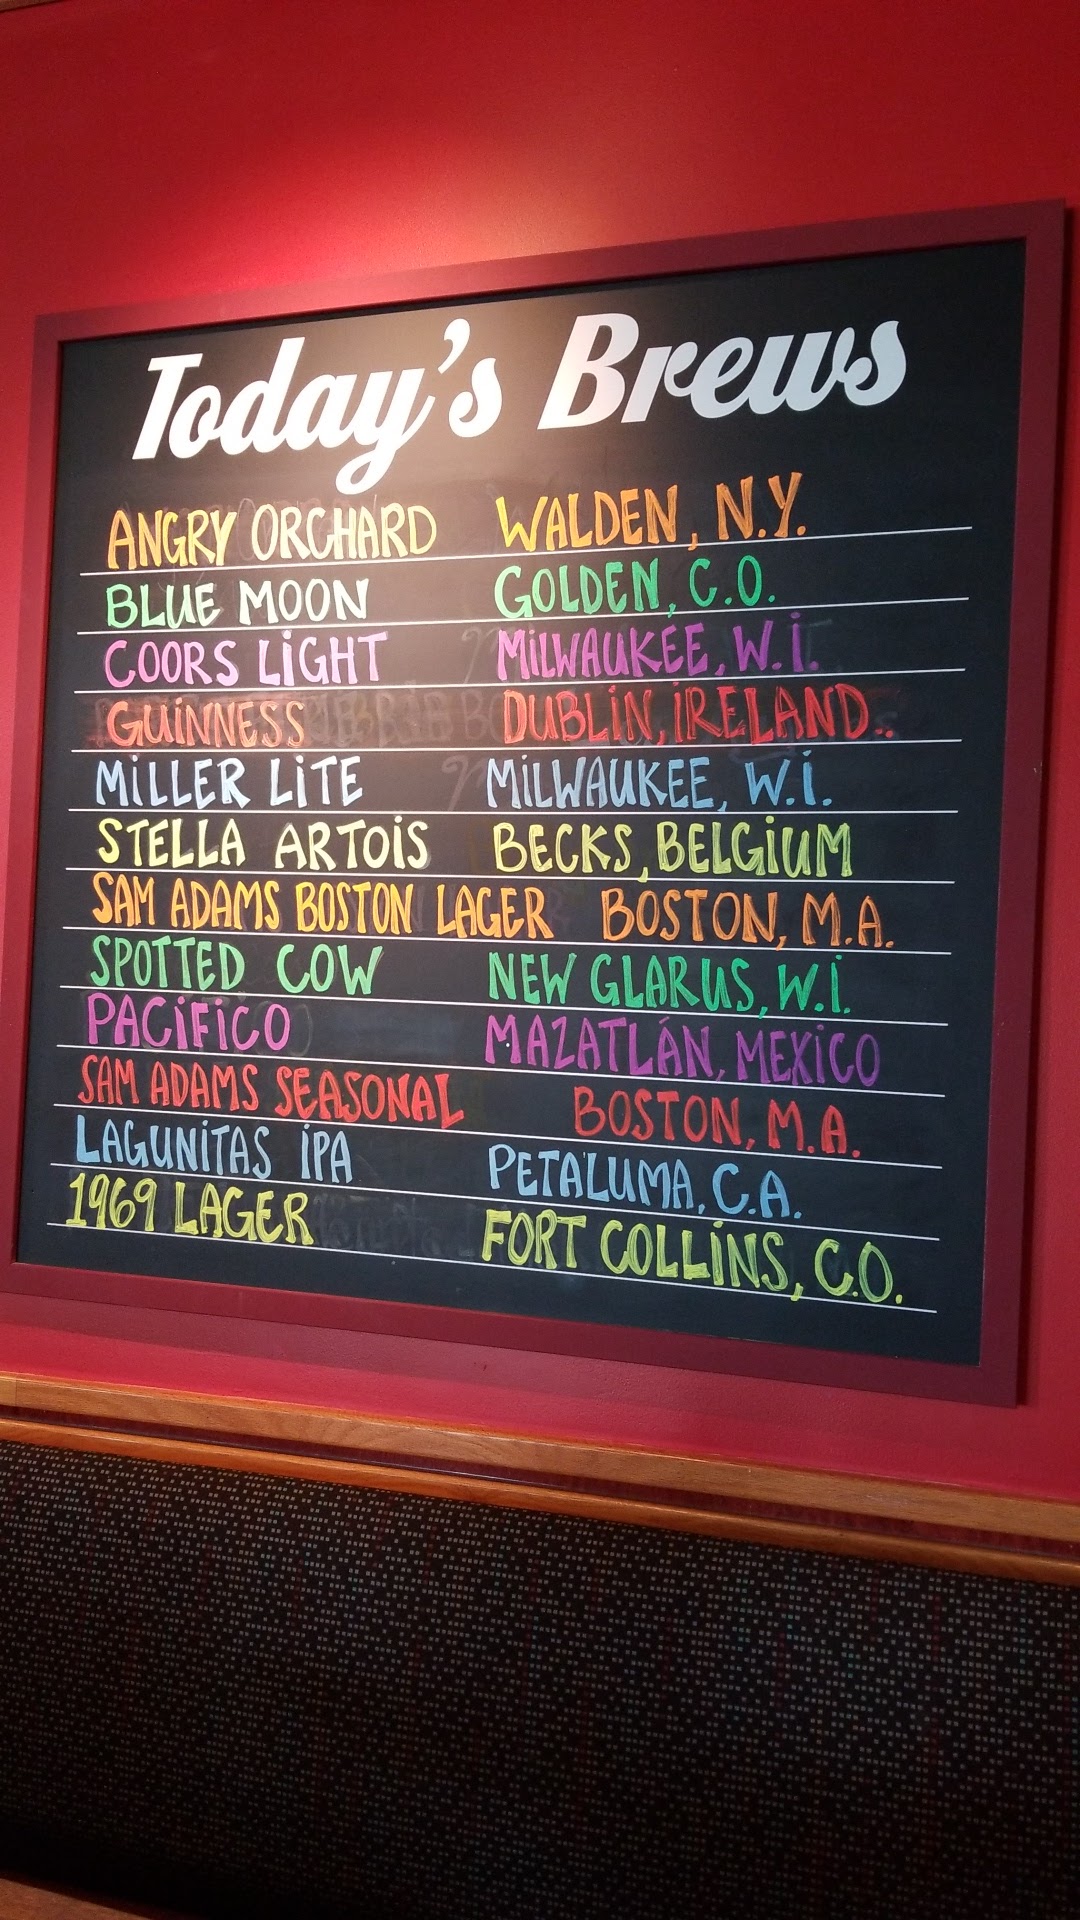 Today's Brews
ANGRY ORCHARD WALDEN, N.Y.
BLUE MOON GOLDEN, C.O.
COORS LiGHT MiLWAUKEE, W.i.
GUiNNESS DUBLiN, iRELAND..
MiLLER LiTE MiLWAUKEE, W.i.
STELLA ARTOiS BECKS, BELGiUM
SAM ADAMS BOSTON LAGER BOSTON, M.A.
SPOTTED COW NEW GLARUS, W.i.
PACiFiCO MAZATLÁN, MEXiCO
SAM ADAMS SEASONAL BOSTON, M.A.
LAGUNiTAS iPA PETALUMA, C.A.
1969 LAGER FORT COLLiNS, C.O.